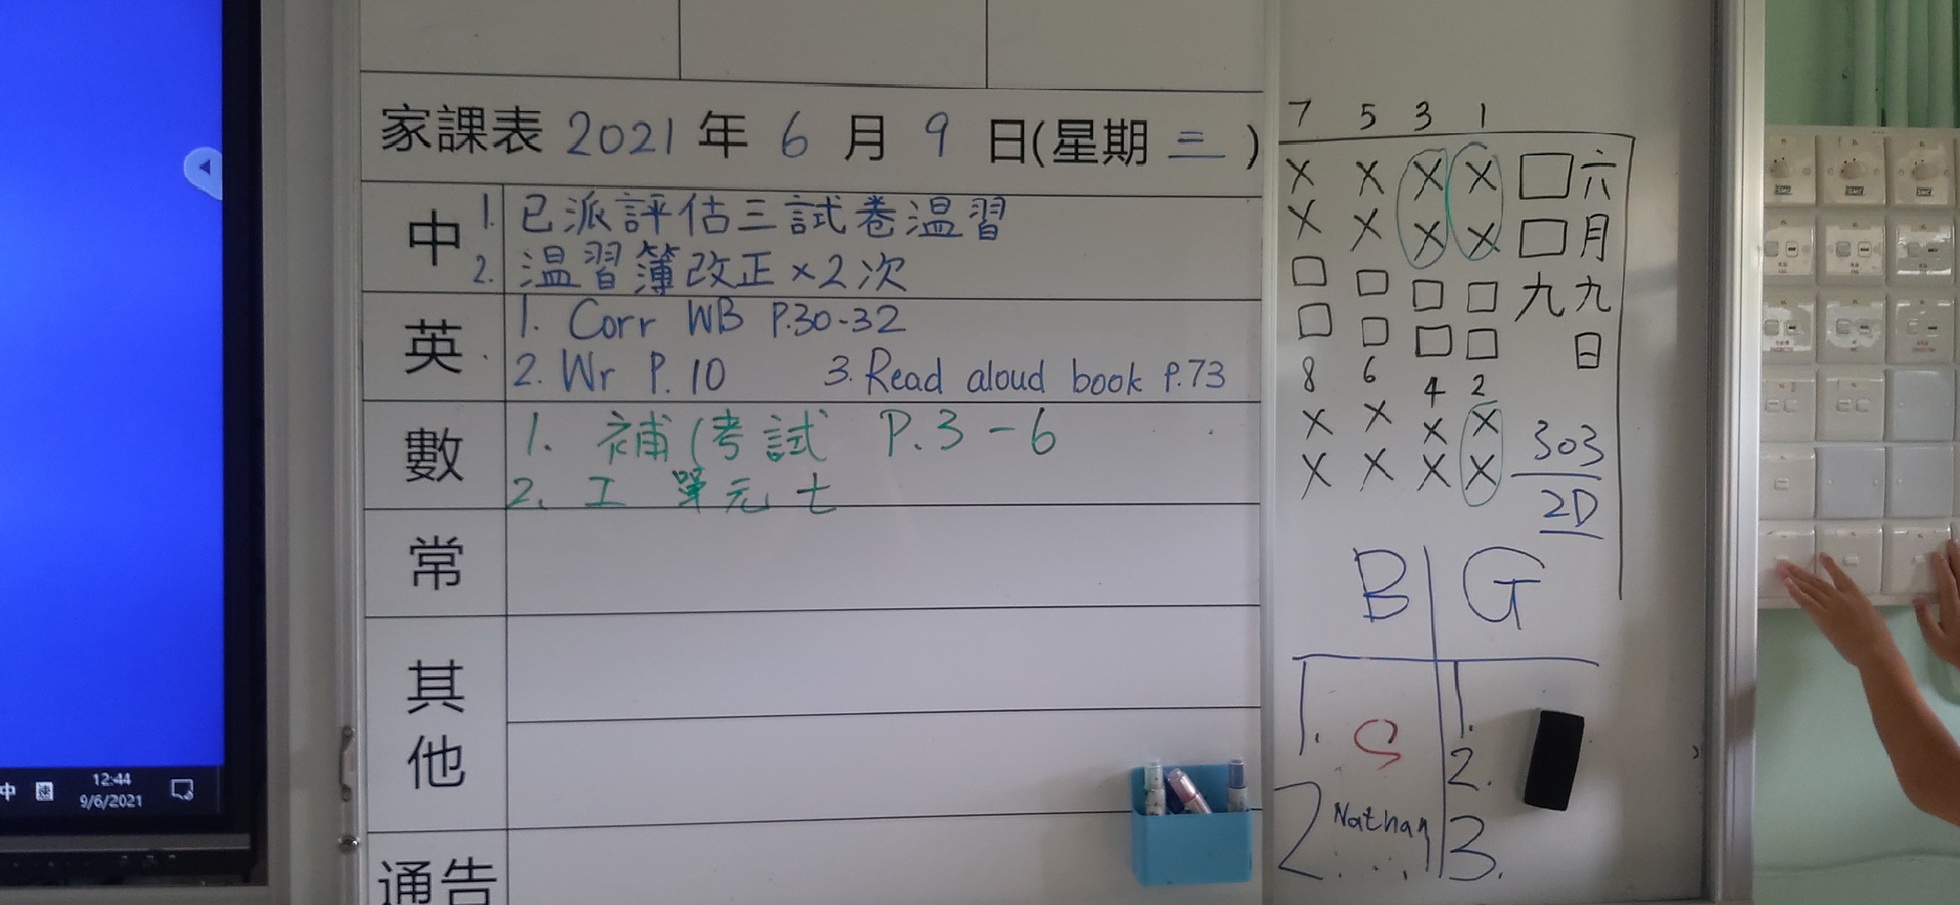 家課表 2021 年 6 月 9 日(星期 三 )
中
1. 已派評估三試卷温習
2. 温習簿改正×2次
英
1. Corr WB P.30-32
2. Wr P. 10 3. Read aloud book P.73
數
1. 補(考試 P.3-6
2. 工 單元 七
常
其他
通告
7 5 3 1
X X X X
X X X X
8 6 4 2
X X X X
X X X X
六月九日
九
303
2D
B G
1. S
2. Nathan
1.
2.
3.
中 速 12:44
9/6/2021